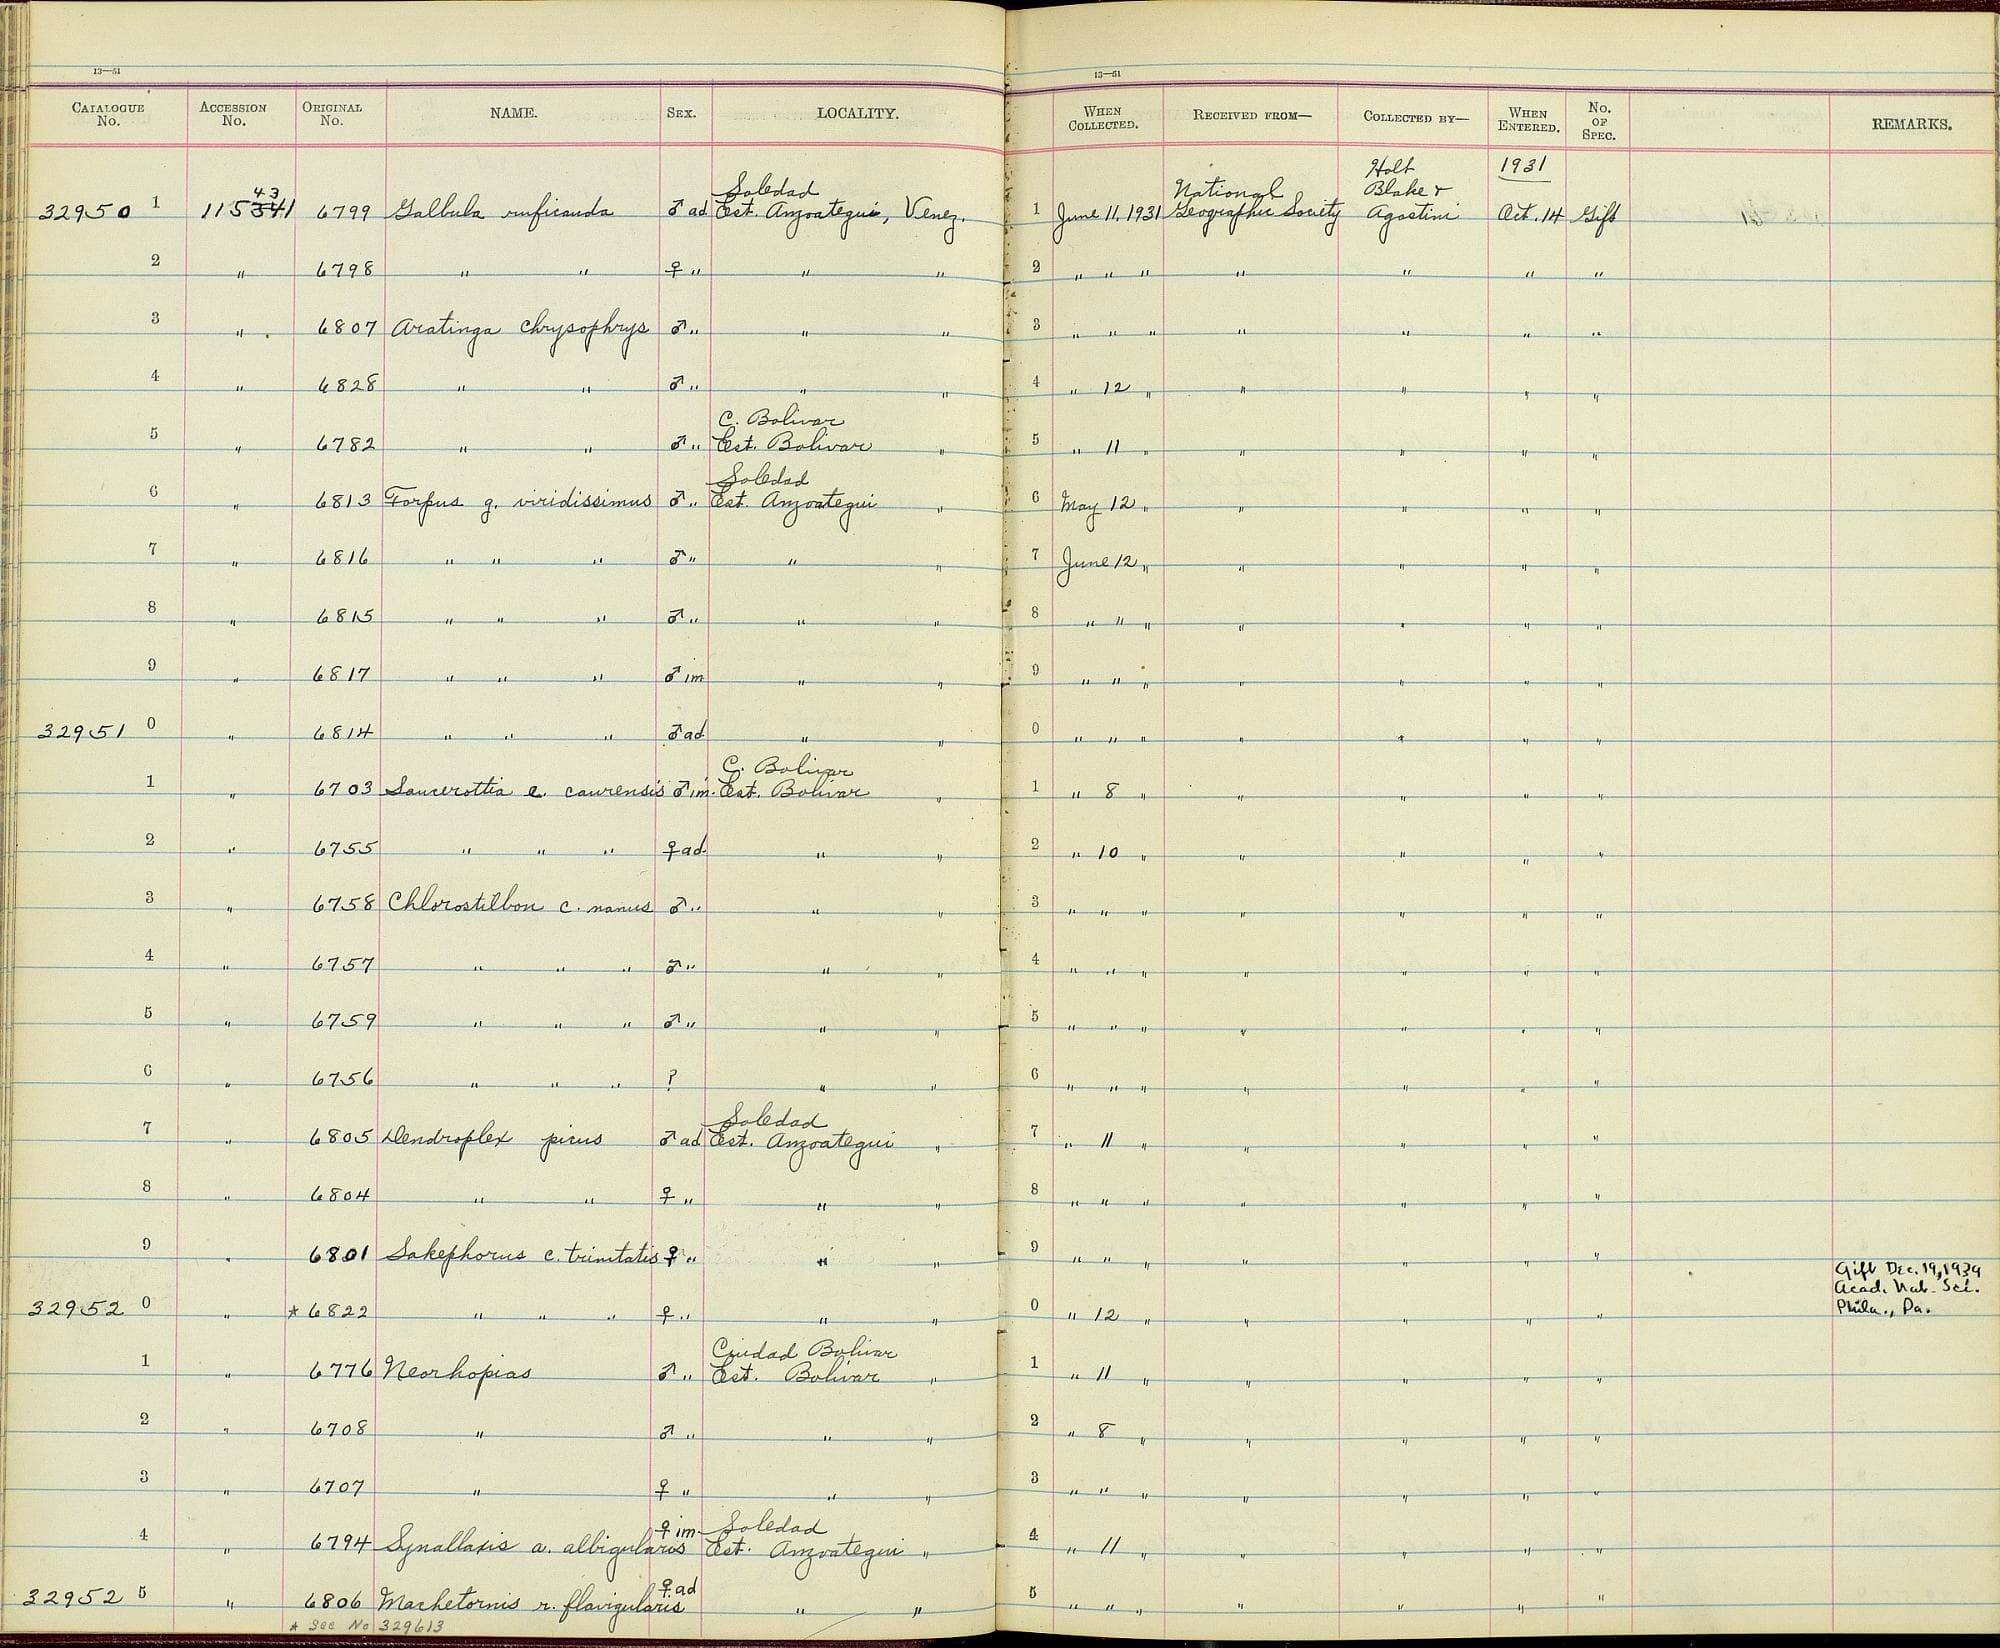 13—51
CATALOGUE No. ACCESSION No. ORIGINAL No. NAME. SEX. LOCALITY.
13—51
WHEN COLLECTED. RECEIVED FROM— COLLECTED BY— WHEN ENTERED. No. OF SPEC. REMARKS.
32950 1 115341 43 6799 Galbula ruficauda ♂ ad Soledad Est. Anzoategui, Venez. 1 June 11, 1931 National Geographic Society Holt Blake & Agostini 1931 Oct. 14 Gift
2 " 6798 " " ♀ " " " 2 " " " " " " "
3 " 6807 Aratinga chrysophrys ♂ " " " 3 " " " " " " "
4 " 6828 " " ♂ " " " 4 " 12 " " " " "
5 " 6782 " " ♂ " C. Bolivar Est. Bolivar " 5 " 11 " " " " "
6 " 6813 Forpus g. viridissimus ♂ " Soledad Est. Anzoategui " 6 May 12 " " " " "
7 " 6816 " " " ♂ " " " 7 June 12 " " " " "
8 " 6815 " " " ♂ " " " 8 " " " " " " "
9 " 6817 " " " ♂ im " " 9 " " " " " " "
32951 0 " 6814 " " " ♂ ad " " 0 " " " " " " "
1 " 6703 Saucerottia e. caurensis ♂ im. C. Bolivar Est. Bolivar " 1 " 8 " " " " "
2 " 6755 " " " ♀ ad. " " 2 " 10 " " " " "
3 " 6758 Chlorostilbon c. nanus ♂ " " " 3 " " " " " " "
4 " 6757 " " " ♂ " " " 4 " " " " " " "
5 " 6759 " " " ♂ " " " 5 " " " " " " "
6 " 6756 " " " ? " " 6 " " " " " " "
7 " 6805 Dendroplex picus ♂ ad Soledad Est. Anzoategui " 7 " 11 " " " " "
8 " 6804 " " ♀ " " " 8 " " " " " " "
9 " 6801 Sakephorus c. trinitatis ♀ " " " 9 " " " " " " "
32952 0 " * 6822 " " " ♀ " " " 0 " 12 " " " " " Gift Dec. 19, 1939 Acad. Nat. Sci. Phila., Pa.
1 " 6776 Neorhopias ♂ " Ciudad Bolivar Est. Bolivar " 1 " 11 " " " " "
2 " 6708 " ♂ " " " 2 " 8 " " " " "
3 " 6707 " ♀ " " " 3 " " " " " " "
4 " 6794 Synallaxis a. albigularis ♀ im Soledad Est. Anzoategui " 4 " 11 " " " " "
32952 5 " 6806 Machetornis r. flavigularis ♀ ad " " 5 " " " " " " "
* See No 329613